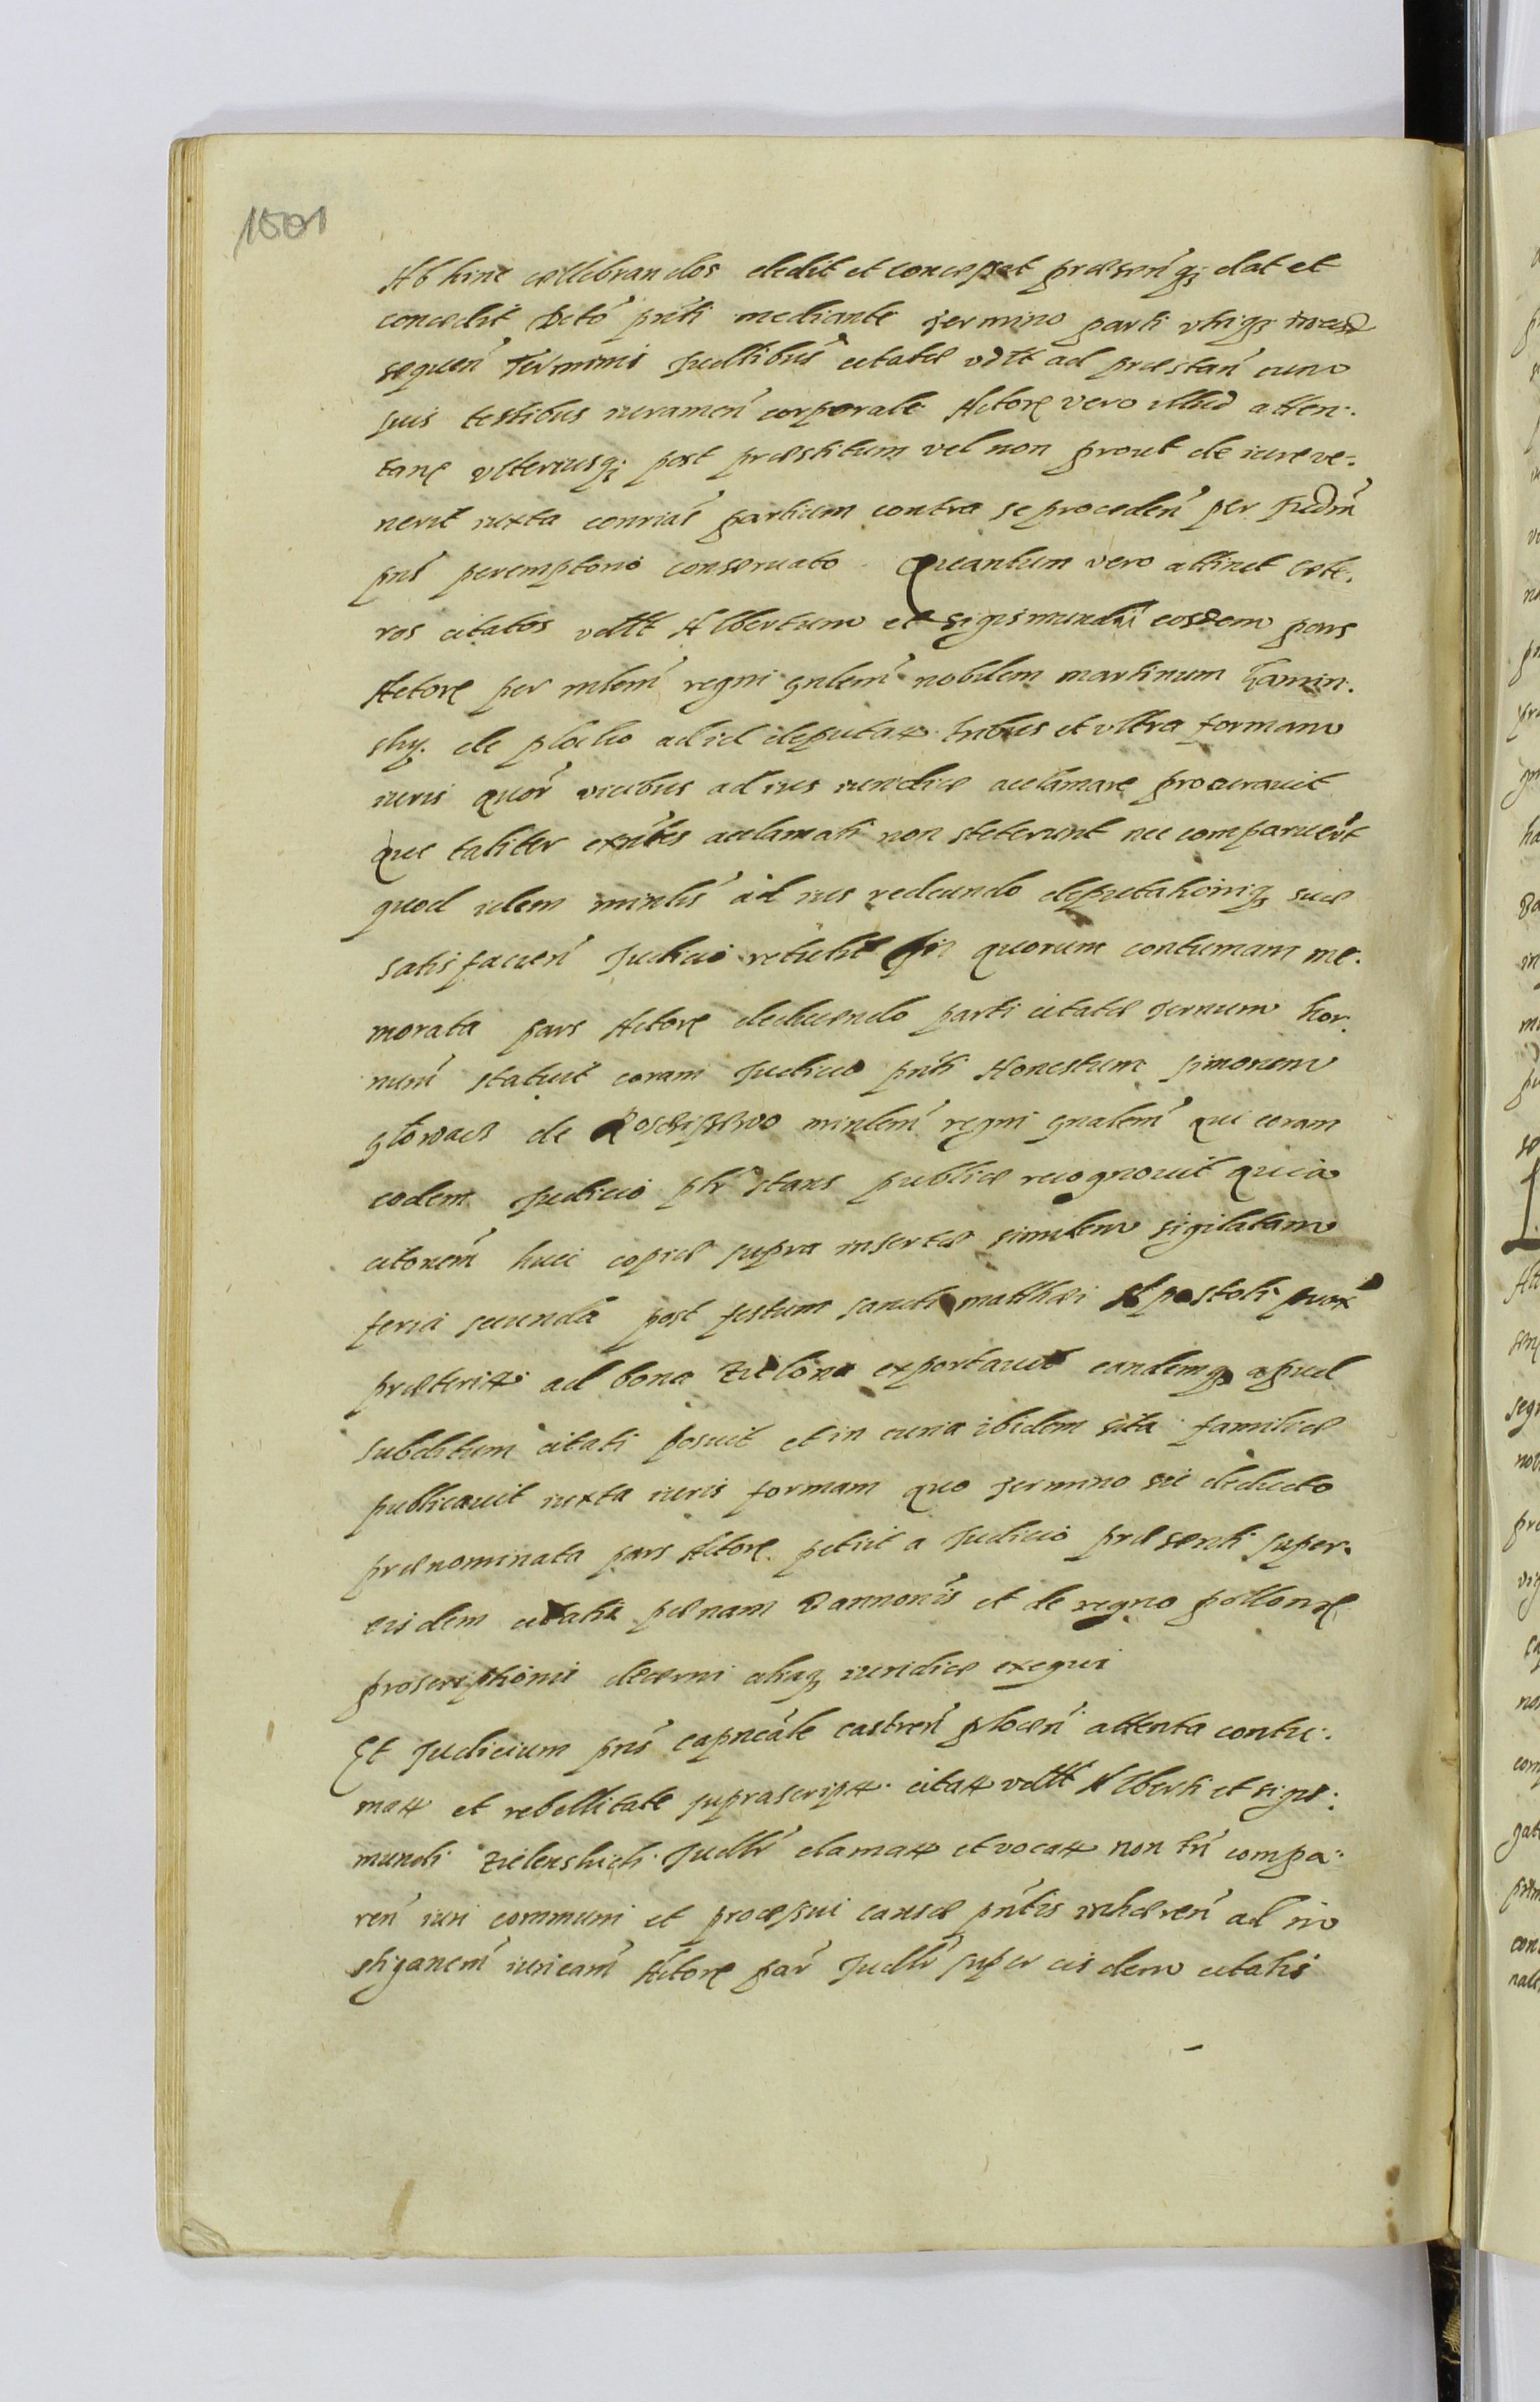 1501
Ab hinc cellebrandos dedit et concessit præsen̄q; dat et
concedit Dcto prn̄ti mediante termino parti vtriq;
sequen̄ Termini Judlibus citatæ vdltt ad præstan̄ cum
suis testibus iuramen̄ corporale Actoreę vero illud atten-
tare vlteriusq; post præstitum vel non prout de iure ve-
nerit iuxta conrias partium contra se proceden̄ per Judm̄
pn̄s peremptorio conseruato. Quantum vero attinet cæte-
ros citatos vdltt Albertum et Sigismundū eosdem pars
Actorę per mlem̄ regni gnlem̄ nobilem martinum
sky de plocko ad id deputat. tribus et vltra formam
iuris quor̄ vicibus ad ius iuridice acclamare procurauit
que taliter exn̄tes acclamati non steterunt nec comparuer̄t
quod idem minlis ad ius redeundo deputationiq; suæ
satisfacien̄ Judicio retulit In quorum contumam me-
morata pars Actorę deducendo parti citatæ termum hor-
num statuit coram Judicio prn̄ti Honestum Simonem
de minlem̄ regni gnalem̄ qui coram
eodem Judicio plr̄ stans publice recognouit quia
citonem̄ huic copiæ supra insertæ similem sigilatam
feria secunda post festum sancti matthæi Apostoli prox̄
præterit. ad bona Zielona exportauit eandemq; apud
subditum citati posuit et in curia ibidem sita familiæ
publicauit iuxta iuris formam quo termino sic deducto
prænominata pars Actorę petiit a Judicio præsenti super
eisdem citatis pænam Bannonis et de regno pollonię
proscriptionis decerni aliaq; iuridice exequi
Et Judicium pn̄s capncale castren̄ plocen̄ attenta contu-
mat et rebellitate suprascript. citat vdltt Alberti et sigis-
mundi Zielenskich Judlr̄ clamat et vocat non tn̄ compa-
ren̄ iuri communi et processui causæ prn̄tis inhæren̄ ad in
stiganem̄ iuricam̄ Actorę par̄ Judlr̄ super eisdem citatis